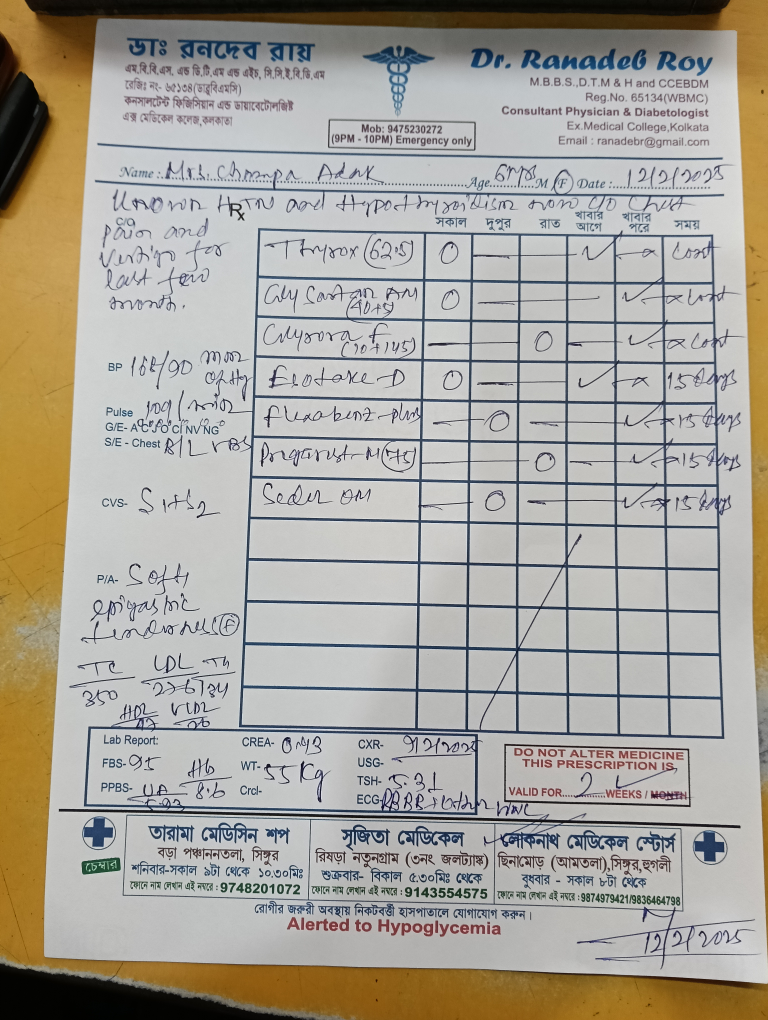 ডাঃ রনদেব রায়
এম.বি.বি.এস, এন্ড ডি.টি.এম এন্ড এইচ, সি.সি.ই.বি.ডি.এম
রেজিঃ নং- ৬৫১৩৪(ডাব্লুবিএমসি)
কনসালটেন্ট ফিজিসিয়ান এন্ড ডায়াবেটোলজিষ্ট
এক্স মেডিকেল কলেজ,কলকাতা
Mob: 9475230272
(9PM - 10PM) Emergency only)
Dr. Ranadeb Roy
M.B.B.S.,D.T.M & H and CCEBDM
Reg.No. 65134(WBMC)
Consultant Physician & Diabetologist
Ex.Medical College,Kolkata
Email : ranadebr@gmail.com
Name : Mrs. Champa Adak Age M (F) Date : 12/2/2025
Known HTN and Hypothyroidism now c/o chest
C/O Rx
pain and
vertigo for
last few
month.
সকাল দুপুর রাত খাবার আগে খাবার পরে সময়
Thyrox (62.5) O — — ✓ x Cont
(40+5) O — ✓ x Cont
(10+145) O — ✓ x Cont
Esotake-D O — — ✓ x 15 days
Flexabenz-plus — O — ✓ x 15 days
— O — ✓ x 15 days
— O — ✓ x 15 days
BP mm of Hg
Pulse /min
G/E- A C J O C NV NG
S/E - Chest B/L VBS
CVS- S1+S2
P/A- Soft
epigastric
tenderness
TC LDL
350
HDL VLDL
Lab Report:
FBS- 95 Hb
PPBS- UA 8.6
5.93
CREA-
WT- 55 Kg
Crcl-
CXR- 9/2/2025
USG-
TSH- 5.31
ECG-
DO NOT ALTER MEDICINE
THIS PRESCRIPTION IS
VALID FOR 2 WEEKS / MONTH
চেম্বার
তারামা মেডিসিন শপ
বড়া পঞ্চাননতলা, সিঙ্গুর
শনিবার-সকাল ৯টা থেকে ১০.৩০মিঃ
ফোনে নাম লেখান এই নম্বরে : 9748201072
সৃজিতা মেডিকেল
রিষড়া নতুনগ্রাম (৩নং জলট্যাঙ্ক)
শুক্রবার- বিকাল ৫.৩০মিঃ থেকে
ফোনে নাম লেখান এই নম্বরে : 9143554575
লোকনাথ মেডিকেল স্টোর্স
ছিনামোড় (আমতলা),সিঙ্গুর,হুগলী
বুধবার - সকাল ৮টা থেকে
ফোনে নাম লেখান এই নম্বরে : 9874979421/9836464798
রোগীর জরুরী অবস্থায় নিকটবর্ত্তী হাসপাতালে যোগাযোগ করুন।
Alerted to Hypoglycemia
12/2/2025